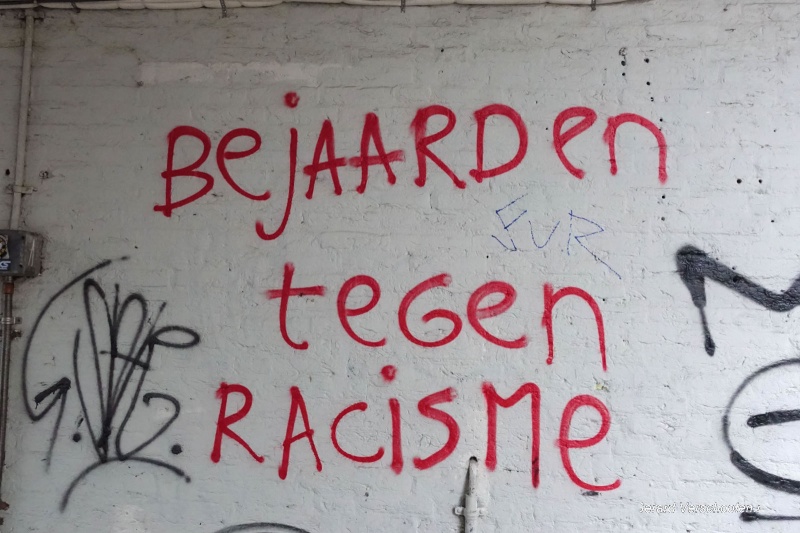 BejAARDen
FUR
tegen
RAcisMe